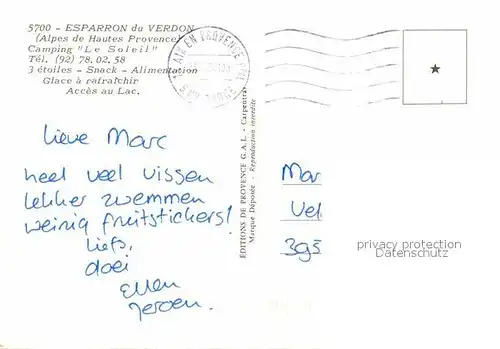 5700 - ESPARRON du VERDON
(Alpes de Hautes Provence)
Camping "Le Soleil"
Tél. (92) 78.02.58
3 étoiles - Snack - Alimentation
Glace à rafraîchir
Accès au Lac.
AIX EN PROVENCE
Lieve Marc
heel veel vissen
lekker zwemmen
weinig fruitstickers!
liefs,
doei
Ellen
Jeroen.
EDITIONS DE PROVENCE G.A.L. - Carpentras
Marque Déposée - Reproduction interdite
Mar
Vel
395
privacy protection
Datenschutz